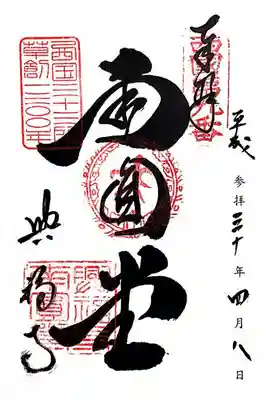 奉拝
西国第九番
平成
参拝三十年四月八日
南円堂
西国三十三所
草創一三〇〇年
興福寺